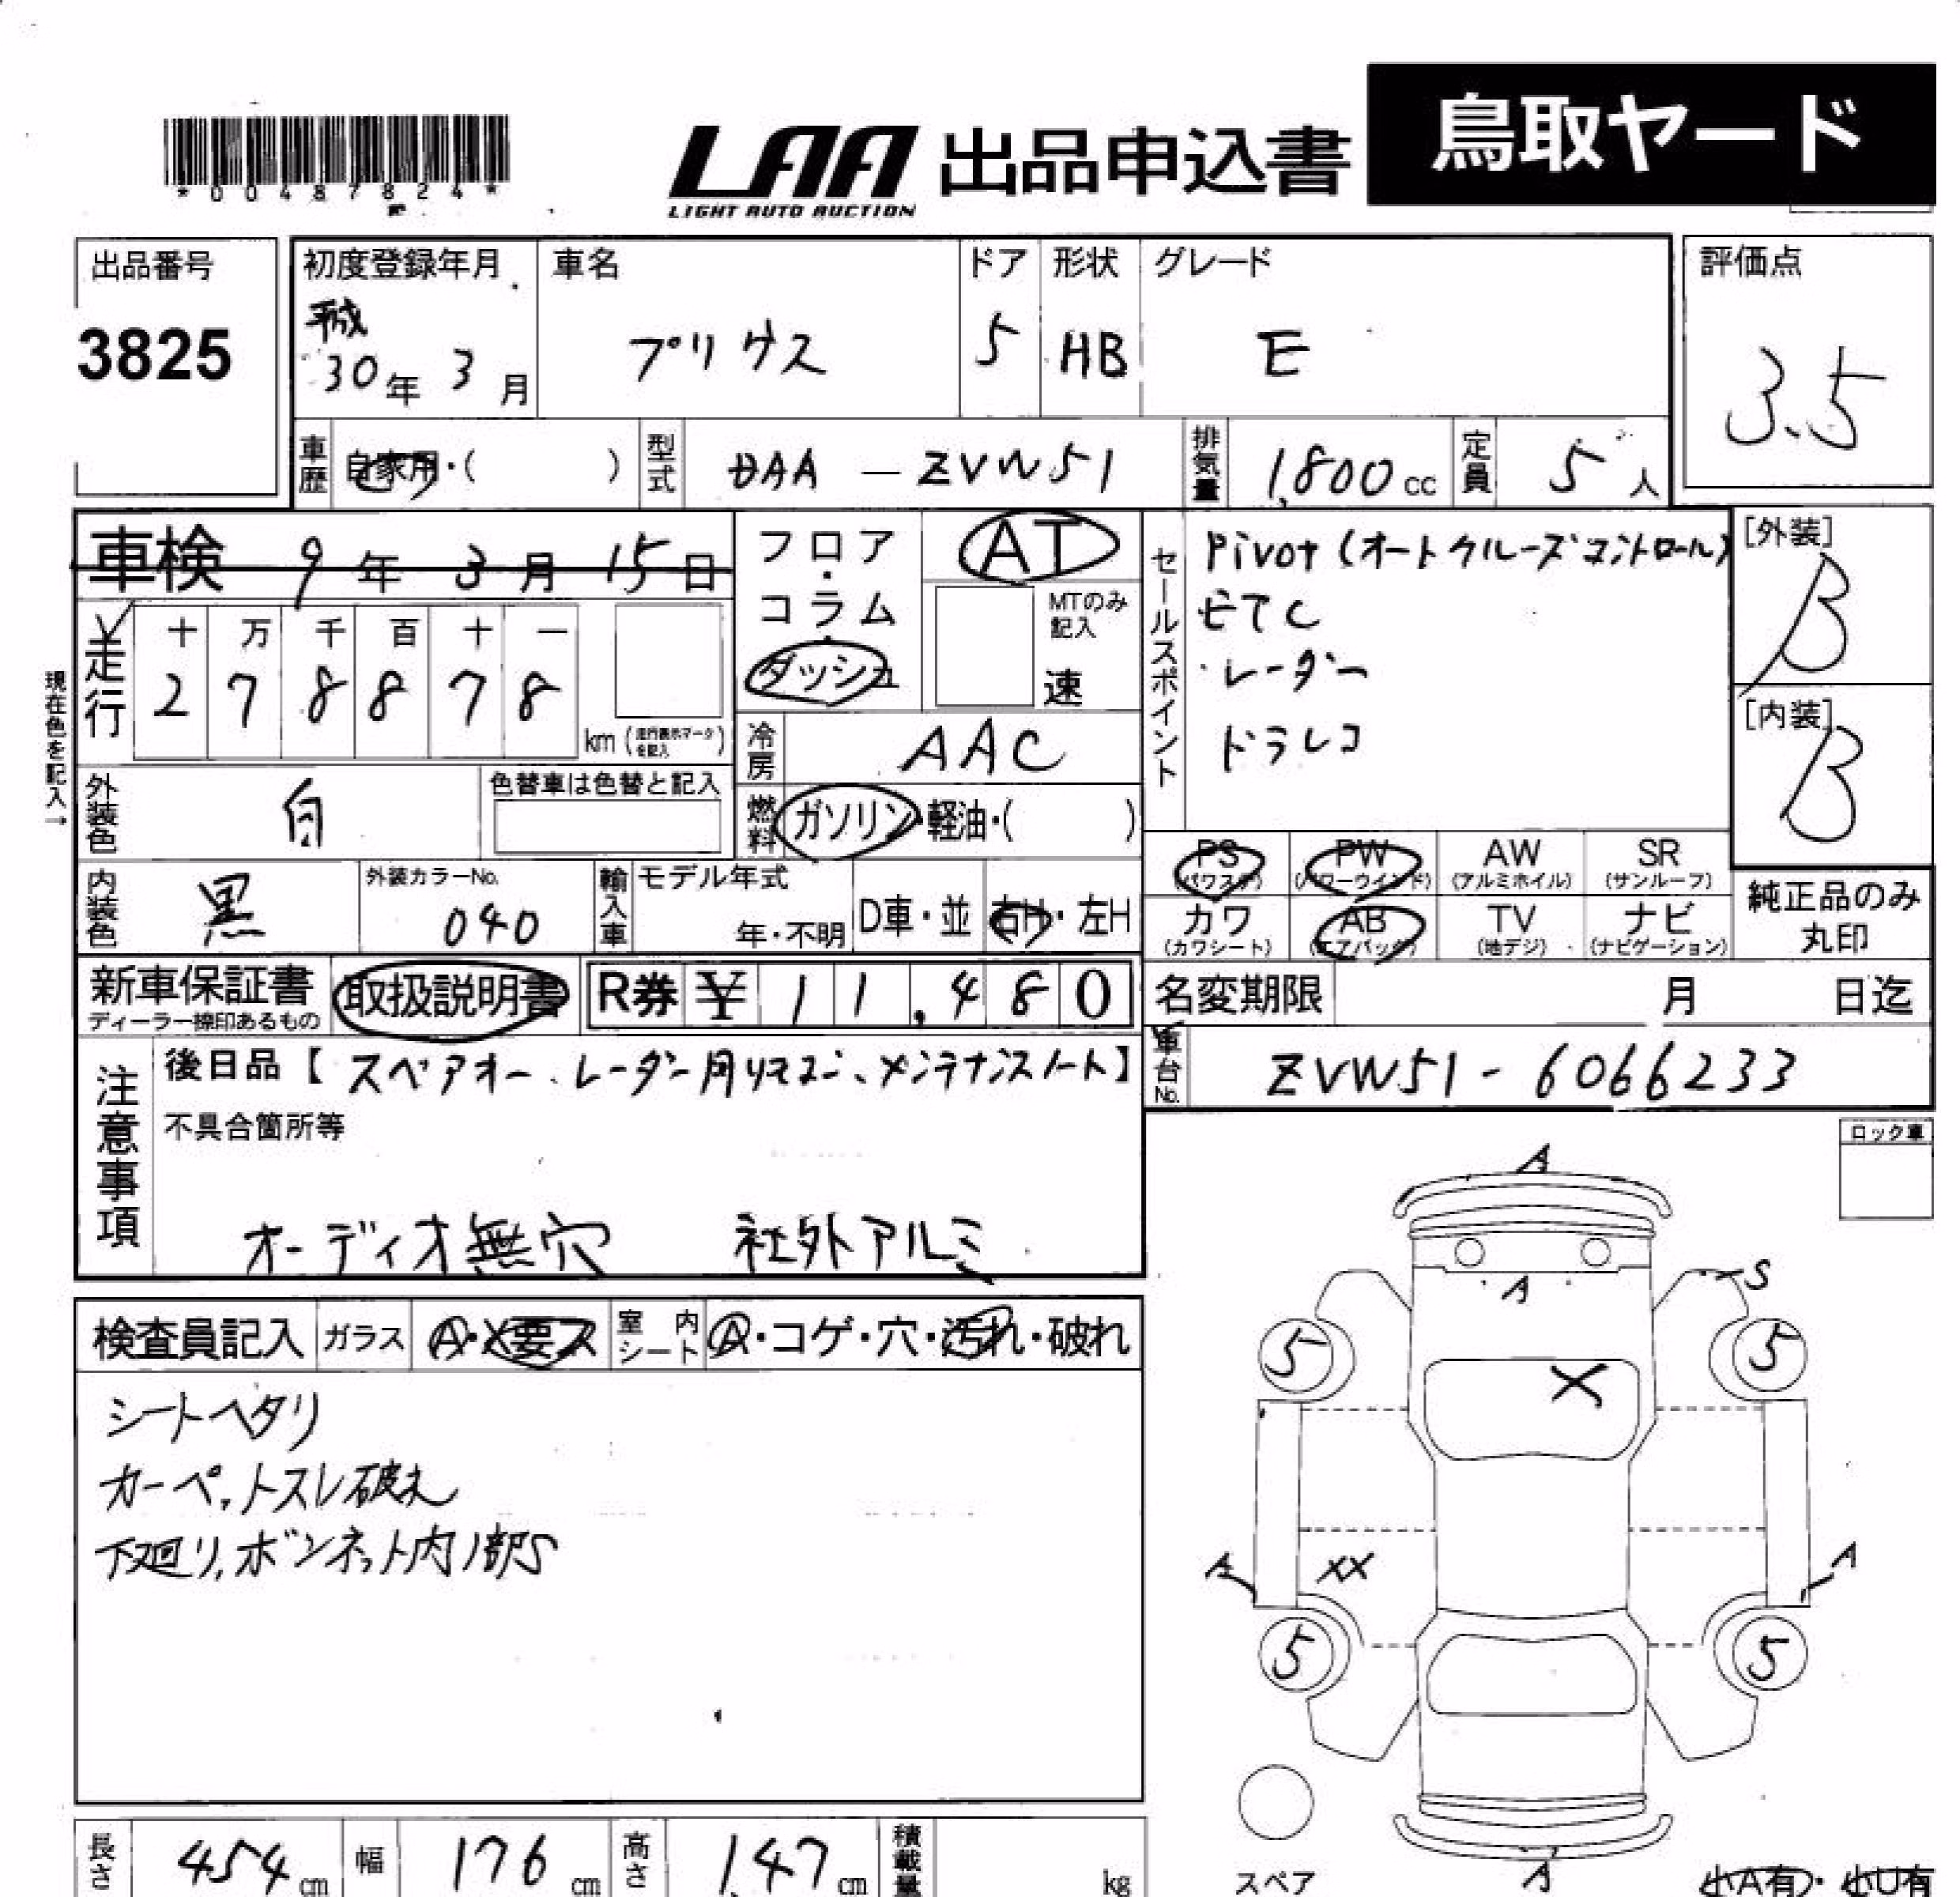 *00487824*
LAA 出品申込書 鳥取ヤード
LIGHT AUTO AUCTION
出品番号
3825
初度登録年月
平成
30年 3月
車名
プリウス
ドア
5
形状
HB
グレード
E
評価点
3.5
車歴 自家用・( )
型式 DAA - ZVW51
排気量 1,800cc
定員 5人
車検 9年 3月 15日
フロア・コラム・ダッシュ
AT
MTのみ記入
速
セールスポイント
Pivot (オートクルーズコントロール)
ETC
レーダー
ドラレコ
[外装]
B
[内装]
B
走行
十 万 千 百 十 一
2 7 8 8 7 8
km (走行表示マークを記入)
現在色を記入→
冷房 AAC
外装色 白
色替車は色替と記入
燃料 ガソリン・軽油・( )
内装色 黒
外装カラーNo.
040
輸入車 モデル年式
年・不明
D車・並 右H・左H
PS (パワステ)
PW (パワーウインド)
AW (アルミホイル)
SR (サンルーフ)
カワ (カワシート)
AB (エアバック)
TV (地デジ)
ナビ (ナビゲーション)
純正品のみ
丸印
新車保証書
ディーラー捺印あるもの
取扱説明書
R券 ¥ 11,480
名変期限 月 日迄
注意事項
後日品【スペアキー、レーダー用リモコン、メンテナンスノート】
不具合箇所等
オーディオ無穴 社外アルミ
車台No. ZVW51-6066233
ロック車
検査員記入 ガラス A・X要ス 室内シート A・コゲ・穴・汚れ・破れ
シートヘタリ
カーペットスレ破れ
下廻り、ボンネット内部S
A
A
S
5
5
X
A
XX
A
5
5
スペア
A
小A有・小U有
長さ 454cm
幅 176cm
高さ 147cm
積載量 kg